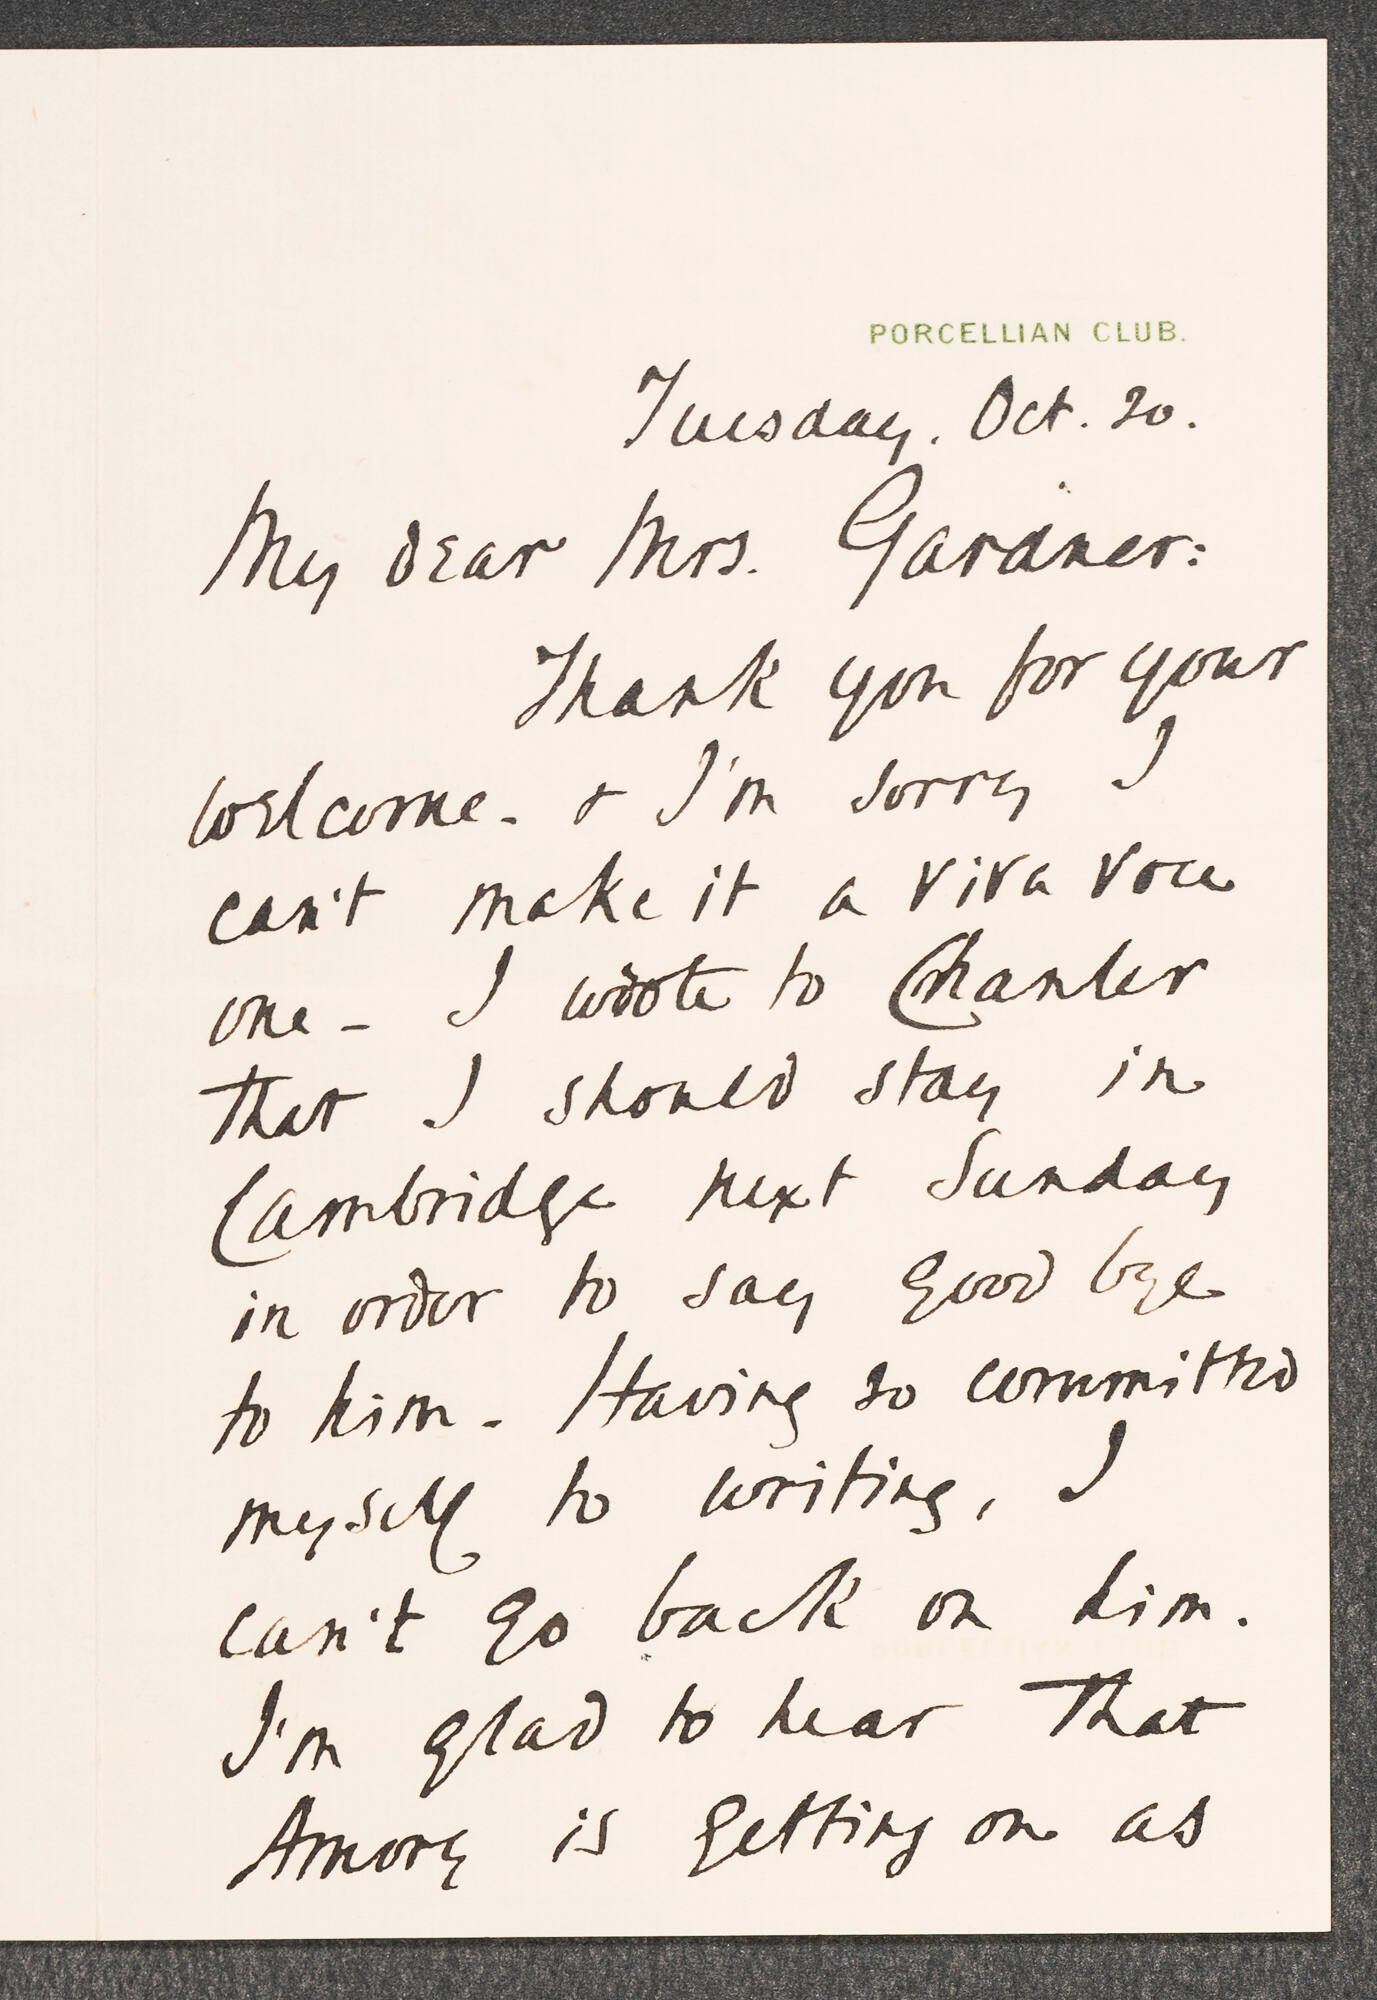 PORCELLIAN CLUB.
Tuesday. Oct. 20.
My dear Mrs. Gardner:
Thank you for your
welcome - & I'm sorry I
can't make it a viva voce
one - I wrote to Chanler
that I should stay in
Cambridge next Sunday
in order to say good bye
to him - Having so committed
myself to writing, I
can't go back on him.
I'm glad to hear that
Amory is getting on as